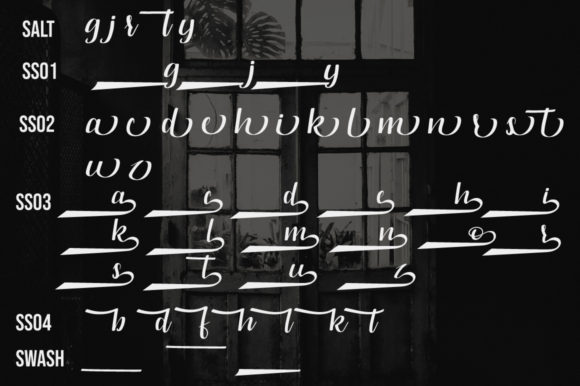 SALT g j r t y
SS01 g j y
SS02 a c d e h i k l m n r s t
u o
SS03 a c d e h i
k l m n o r
s t u
SS04 b d f h l k t
SWASH